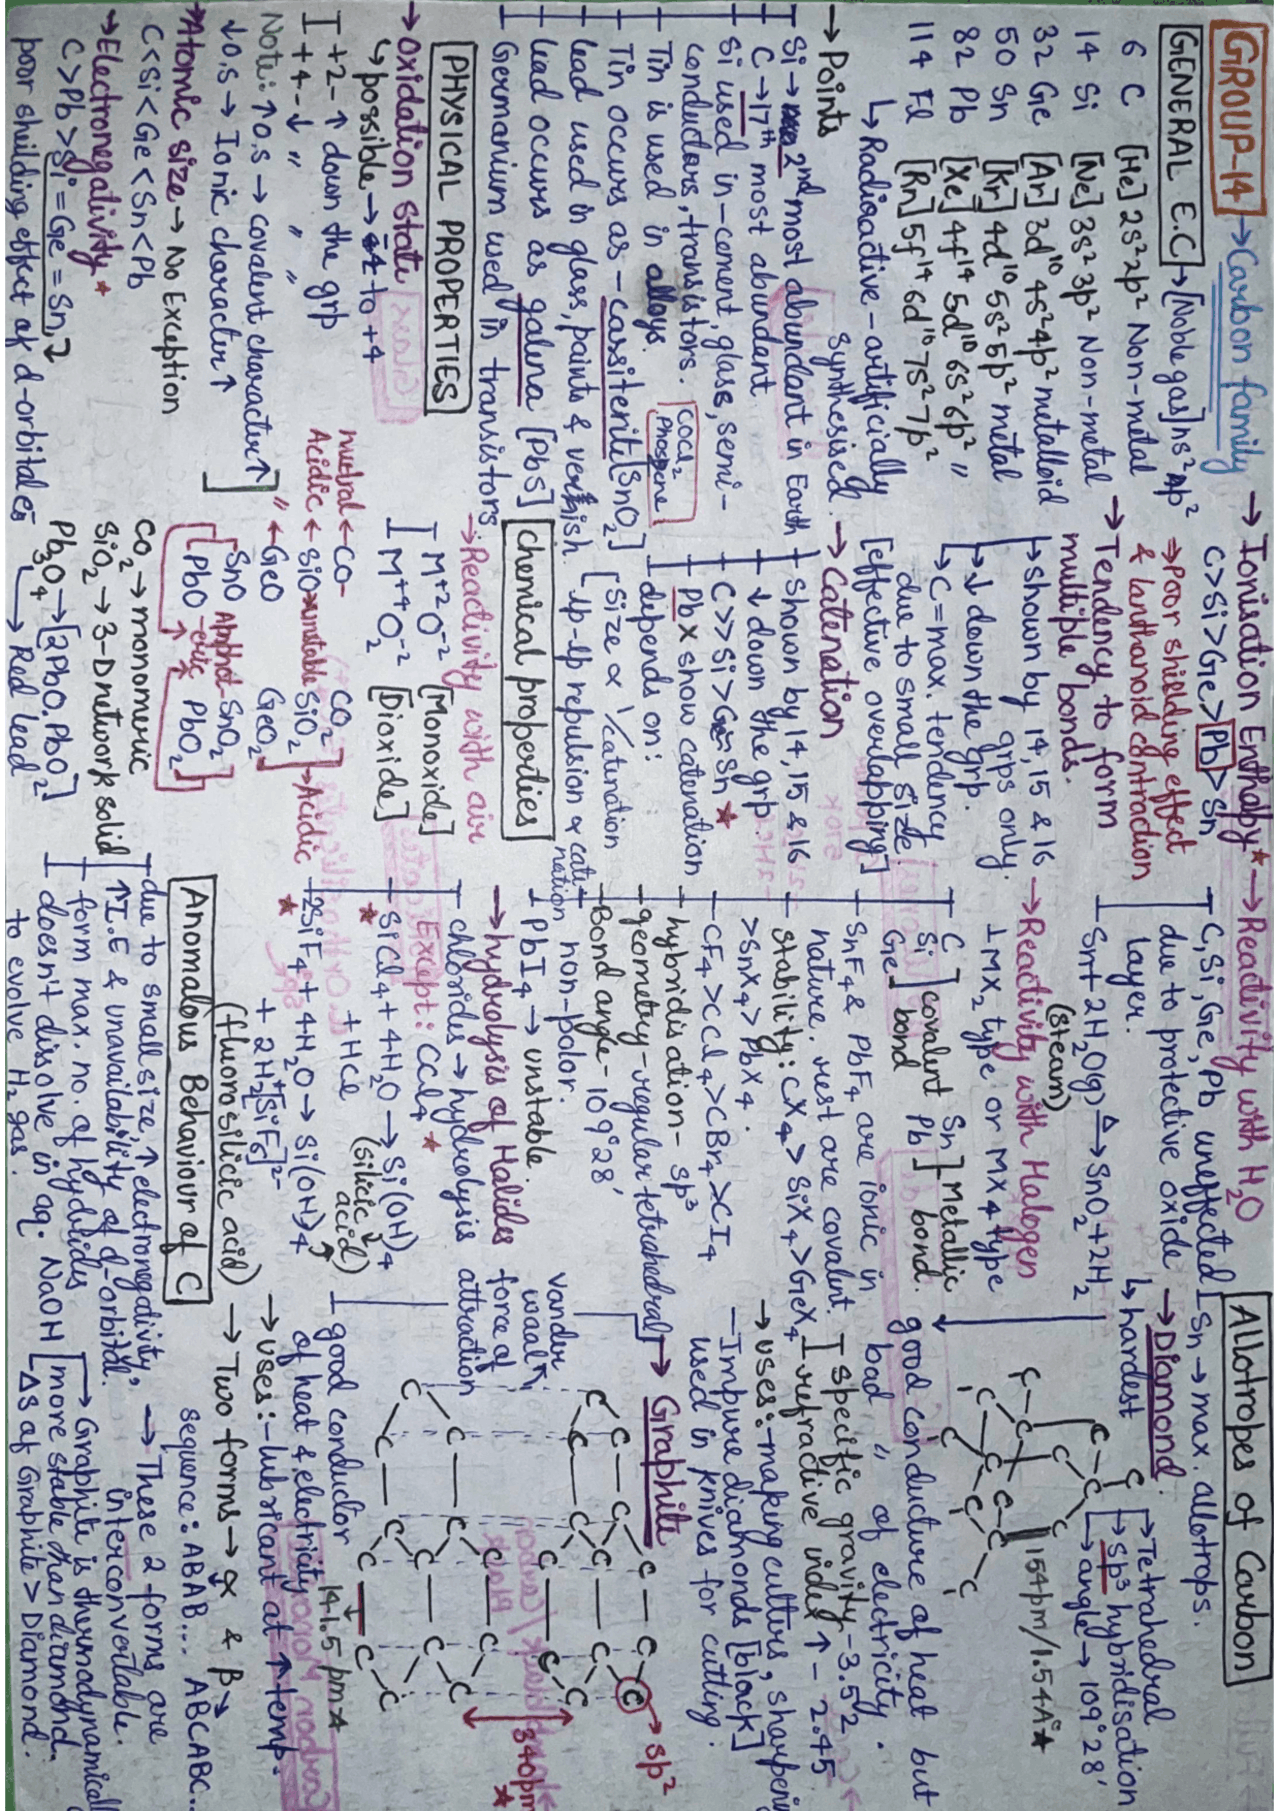 GROUP-14 → Carbon family
GENERAL E.C → [Noble gas] ns² np²
6 C [He] 2s² 2p² Non-metal
14 Si [Ne] 3s² 3p² Non-metal
32 Ge [Ar] 3d¹⁰ 4s² 4p² metalloid
50 Sn [Kr] 4d¹⁰ 5s² 5p² metal
82 Pb [Xe] 4f¹⁴ 5d¹⁰ 6s² 6p² "
114 Fl [Rn] 5f¹⁴ 6d¹⁰ 7s² 7p²
↳ Radioactive - artificially
synthesised.
→ Points
Si → 2nd most abundant in Earth
C → 17th most abundant
Si used in - cement, glass, semi-
conductors, transistors.
Tin is used in alloys.
COCl₂
Phosgene
Tin occurs as - cassiterite [SnO₂]
lead used in glass, paints & vernish.
lead occurs as galena [PbS]
Germanium used in transistors.
PHYSICAL PROPERTIES
→ Oxidation state
↳ possible → -4 to +4
+2 - ↑ down the grp
+4 - ↓ " " "
Note: ↑ O.S → covalent character ↑
↓ O.S → Ionic character ↑
→ Atomic size → No Exception
C < Si < Ge < Sn < Pb
→ Electronegativity *
C > Pb > Si = Ge = Sn,
poor shilding effect of d-orbitales
→ Ionisation Enthalpy *
C > Si > Ge > Pb > Sn
⇒ Poor shielding effect
& lanthanoid contraction
→ Tendency to form
multiple bonds.
→ shown by 14, 15 & 16
grps only.
→ ↓ down the grp.
→ C = max. tendency
due to small size.
[effective overlapping]
→ Catenation
shown by 14, 15 & 16
↓ down the grp.
C >> Si > Ge ≈ Sn *
Pb x show catenation
depends on:
[size ∝ 1/catenation
lp-lp repulsion ∝ catenation
Chemical properties
→ Reactivity with air
M⁺²O⁻² [Monoxide]
M⁺⁴O₂⁻² [Dioxide]
nutral ← CO - CO₂
Acidic ← SiO → unstable SiO₂ → Acidic
" ← GeO GeO₂
SnO Amphot- SnO₂
PbO -eric PbO₂
CO₂ → monomeric
SiO₂ → 3-D network solid
Pb₃O₄ → [2PbO, PbO₂]
→ Red lead
→ Reactivity with H₂O
C, Si, Ge, Pb uneffected
due to protective oxide
layer.
Sn + 2H₂O(g) Δ→ SnO₂ + 2H₂
(steam)
→ Reactivity with Halogen
MX₂ type or MX₄ type
C
Si ] covalent
Ge bond
Sn ] Metallic
Pb bond.
SnF₄ & PbF₄ are ionic in
nature. rest are covalent.
stability: CX₄ > SiX₄ > GeX₄
> SnX₄ > PbX₄.
CF₄ > CCl₄ > CBr₄ > CI₄
hybridisation - sp³
geometry - regular tetrahedral
Bond angle - 109°28'
non-polar.
PbI₄ → unstable
→ hydrolysis of Halides
chlorides → hydrolysis
Except: CCl₄ *
SiCl₄ + 4H₂O → Si(OH)₄
+ HCl (silicic acid)
2SiF₄ + 4H₂O → Si(OH)₄
+ 2H₂⁺[SiF₆]²⁻
(fluorosilicic acid)
Anomalous Behaviour of C
due to small size, ↑ electronegativity,
↑ I.E & unavailability of d-orbital.
form max. no. of hydrides
doesn't dissolve in aq. NaOH
to evolve H₂ gas.
Allotropes of Carbon
Sn → max. allotrops.
→ Diamond.
↳ hardest
→ Tetrahedral
→ sp³ hybridisation
→ angle → 109°28'
154pm/1.54A° *
good conducture of heat but
bad " of electricity.
specific gravity - 3.52
refractive index ↑ - 2.45
→ uses: - making cutters, sharpening
- Impure diamonds [black]
used in knives for cutting.
→ Graphite
sp²
vander
waal
force of
attraction
340pm *
141.5 pm *
good conductor
of heat & electricity
→ uses: - lubricant at ↑ temp.
→ Two forms → α & β
sequence: ABAB... ABCABC...
→ These 2 forms are
interconvertable.
→ Graphite is thermodynamically
more stable than diamond.
ΔS of Graphite > Diamond.